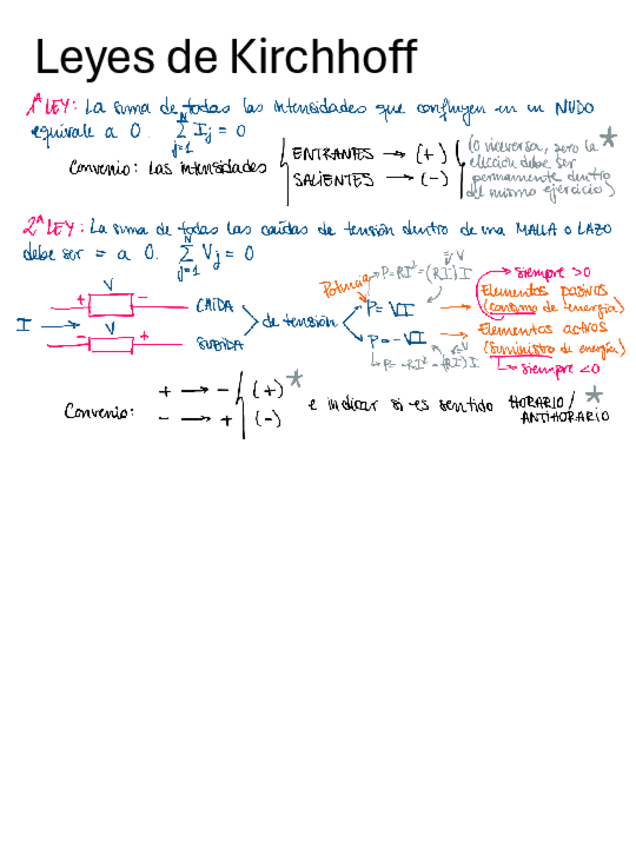 Leyes de Kirchhoff
1ª LEY: La suma de todas las intensidades que confluyen en un NUDO
equivale a 0. N Σ j=1 Ij = 0
Convenio: Las intensidades
ENTRANTES → (+)
SALIENTES → (-)
(o viceversa, pero la *
elección debe ser
permanente dentro
del mismo ejercicio)
2ª LEY: La suma de todas las caídas de tensión dentro de una MALLA o LAZO
debe ser = a 0. N Σ j=1 Vj = 0
I →
V
+ -
CAÍDA
V
- +
SUBIDA
de tensión
Potencia
P=RI²=(RI)I
=V
P=VI
P=-VI
=V
P=-RI²=-(RI)I
siempre >0
Elementos pasivos
(consumo de energía)
Elementos activos
(suministro de energía)
siempre <0
Convenio:
+ → - (+) *
- → + (-)
e indicar si es sentido HORARIO/ *
ANTIHORARIO